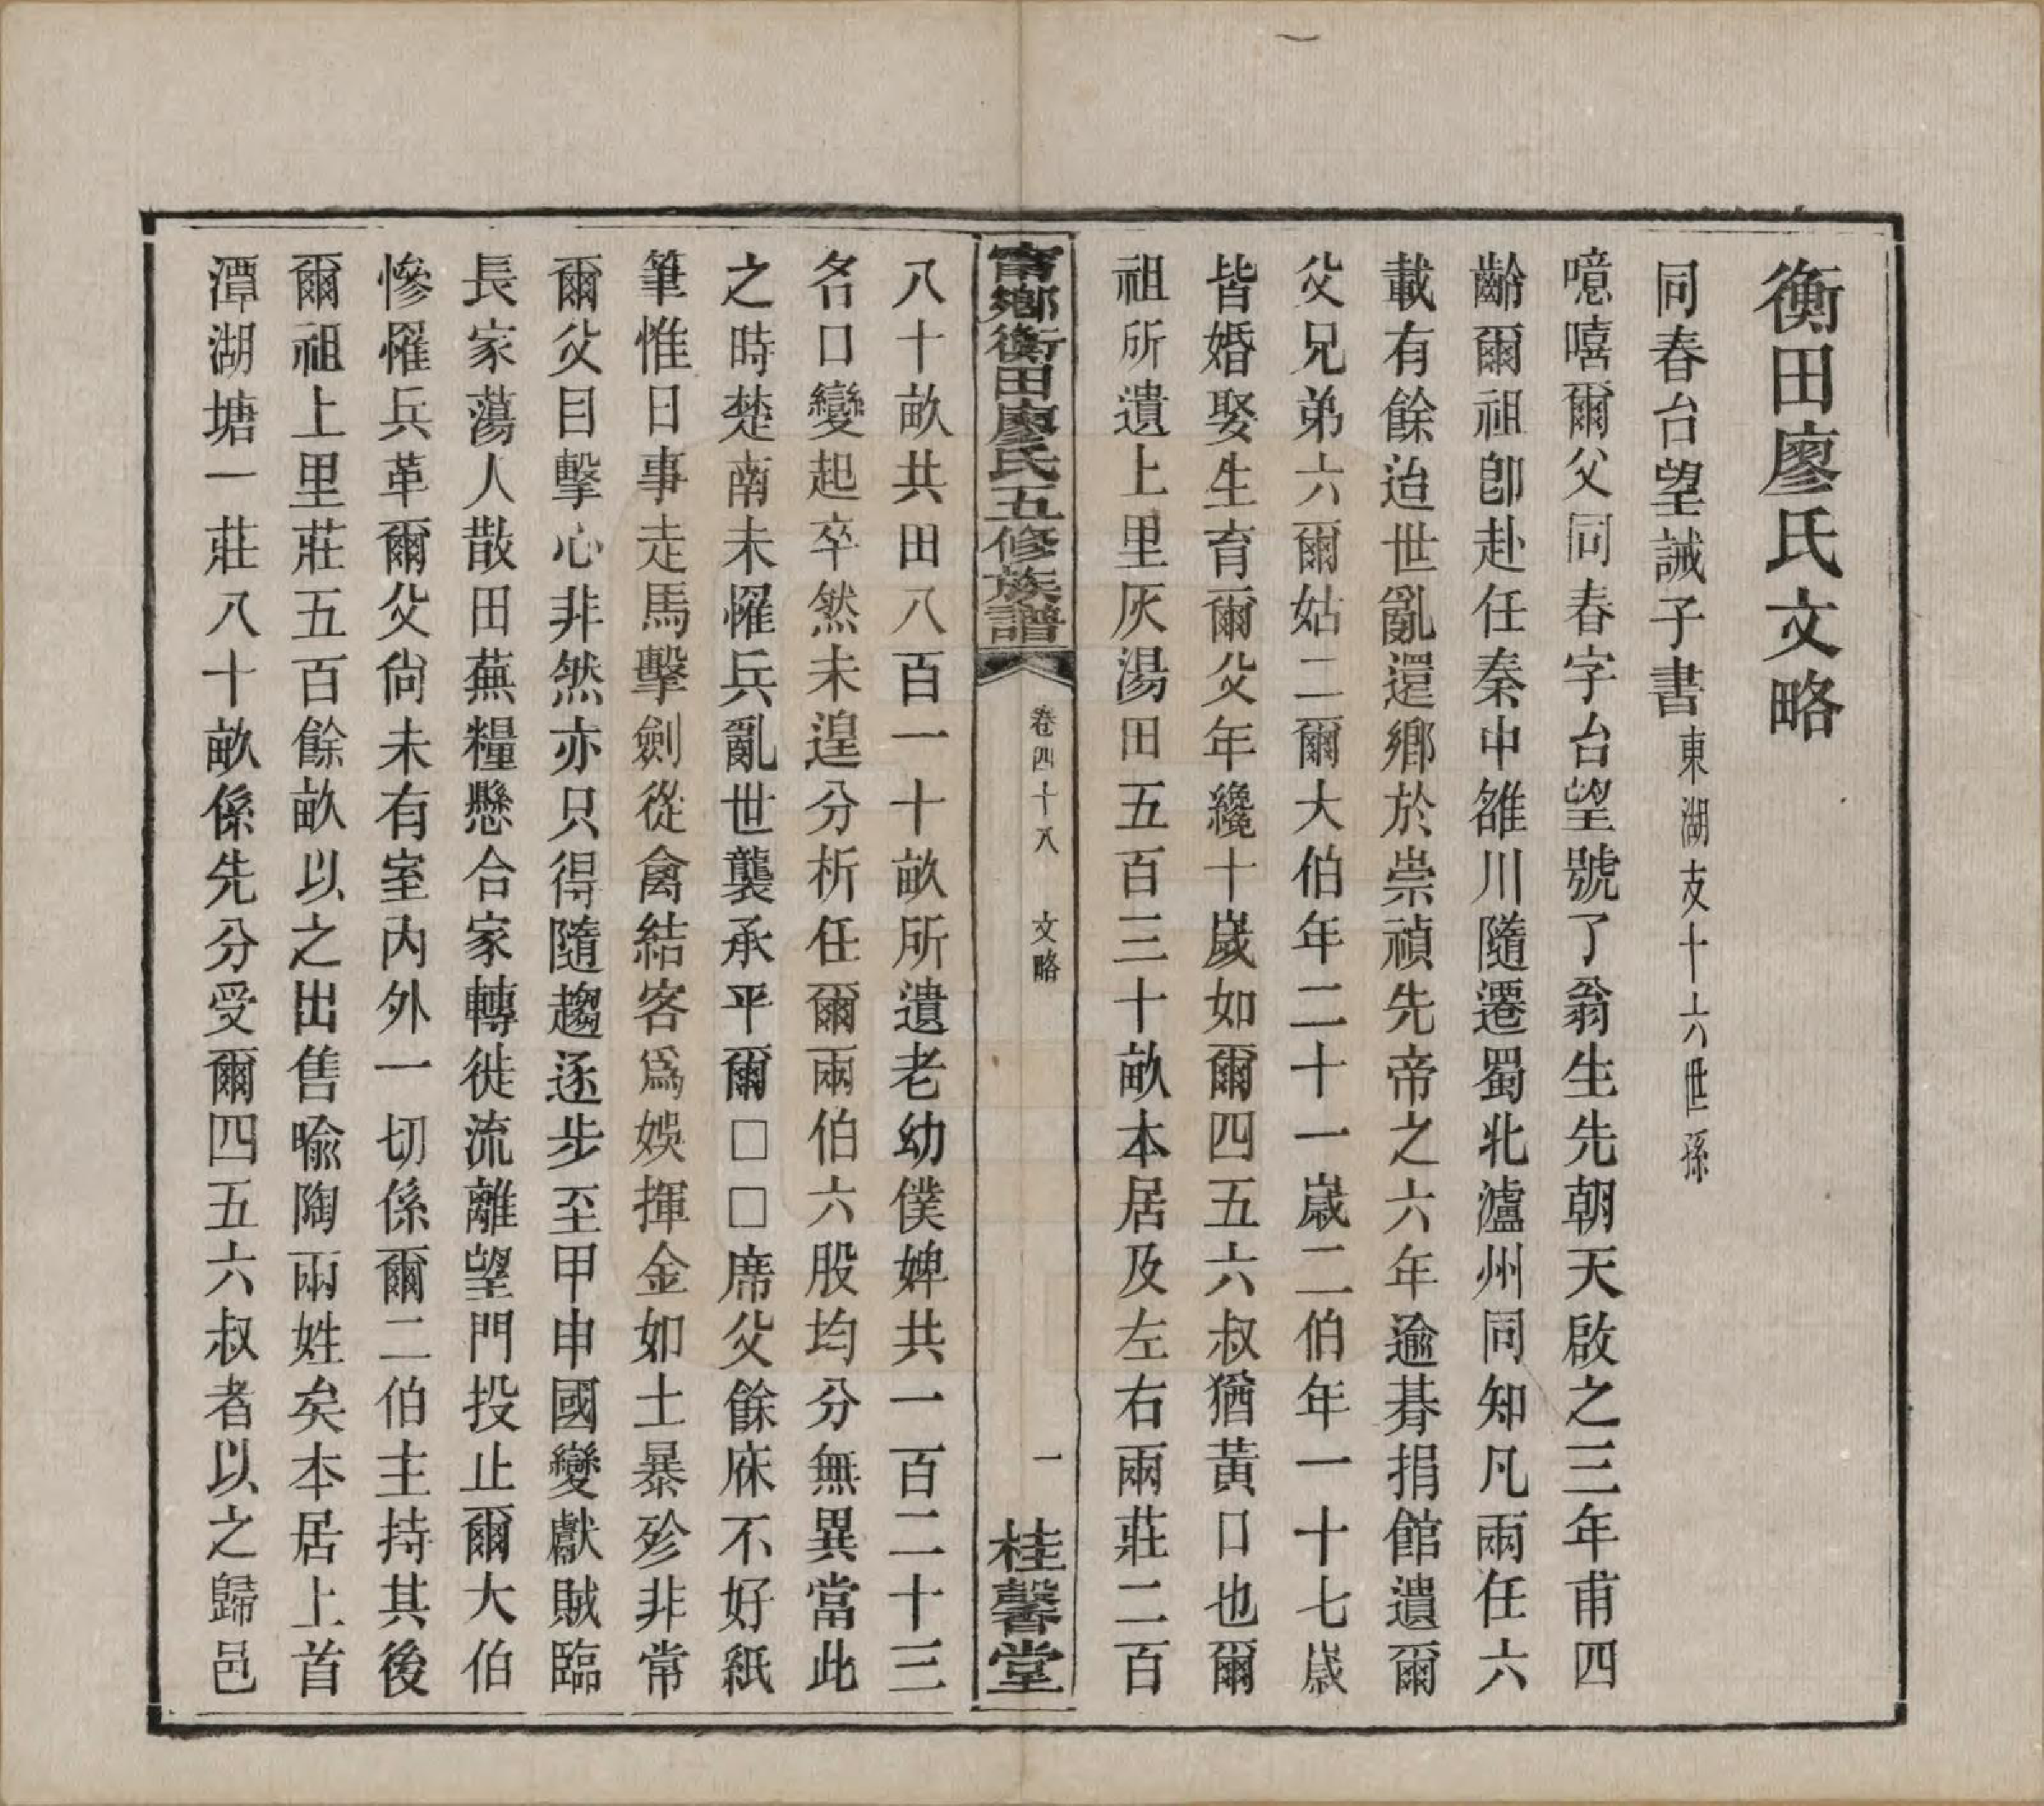 衡田廖氏文略
同春台望誡子書東湖支十六世孫
噫嘻爾父同春字台望號了翁生先朝天啟之三年甫四
齡爾祖卽赴任秦中雒川隨遷蜀北瀘州同知凡兩任六
載有餘迨世亂還鄉於崇禎先帝之六年逾朞捐館遺爾
父兄弟六爾姑二爾大伯年二十一歲二伯年一十七歲
皆婚娶生育爾父年纔十歲如爾四五六叔猶黃口也爾
祖所遺上里灰湯田五百三十畝本居及左右兩莊二百
甯鄉衡田廖氏五修族譜 卷四十八 文略 一 桂馨堂
八十畝共田八百一十畝所遺老幼僕婢共一百二十三
名口變起卒然未遑分析任爾兩伯六股均分無異當此
之時楚南未罹兵亂世襲承平爾□□席父餘庥不好紙
筆惟日事走馬擊劍從禽結客爲娛揮金如土暴殄非常
爾父目擊心非然亦只得隨趨逐步至甲申國變獻賊臨
長家蕩人散田蕪糧懸合家轉徙流離望門投止爾大伯
慘罹兵革爾父尙未有室內外一切係爾二伯主持其後
爾祖上里莊五百餘畝以之出售喩陶兩姓矣本居上首
潭湖塘一莊八十畝係先分受爾四五六叔者以之歸邑